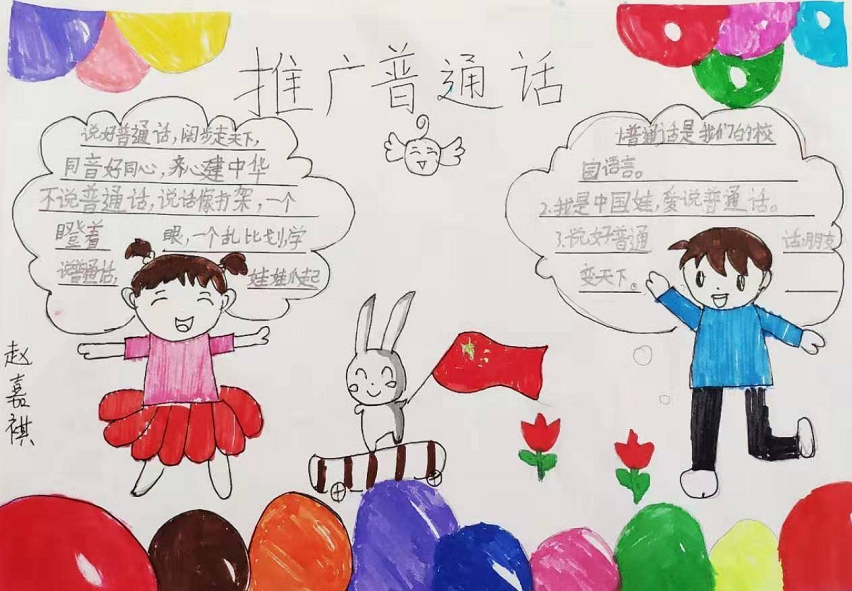 推广普通话
说好普通话,阔步走天下,
同音好同心,齐心建中华
不说普通话,说话像打架,一个
瞪着 眼,一个乱比划,学
说普通话, 娃娃 起
1.普通话是我们的校
园语言。
2.我是中国娃,爱说普通话。
3.说好普通 话,朋友
变天下。
赵嘉祺